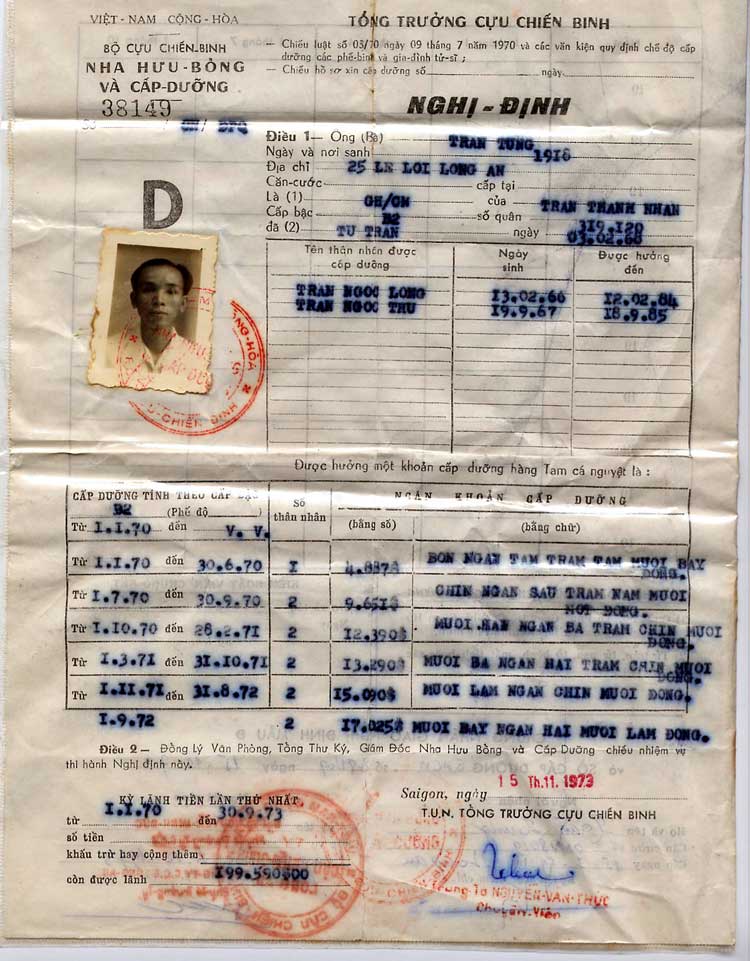 VIỆT-NAM CỘNG-HÒA
BỘ CỰU CHIẾN-BINH
NHA HƯU-BỔNG
VÀ CẤP-DƯỠNG
38149
D
TỔNG TRƯỞNG CỰU CHIẾN BINH
— Chiếu luật số 03/70 ngày 09 tháng 7 năm 1970 và các văn kiện quy định chế độ cấp
dưỡng các phế-binh và gia-đình tử-sĩ ;
— Chiếu hồ sơ xin cấp dưỡng số ngày
NGHỊ-ĐỊNH
Điều 1— Ông (Bà) TRAN TUNG
Ngày và nơi sanh 1918
Địa chỉ 25 LE LOI LONG AN
Căn-cước cấp tại
Là (1) GH/GM của TRAN THANH NHAN
Cấp bậc B2 số quân 319.120
đã (2) TU TRAN ngày 03.02.68
Tên thân nhân được cấp dưỡng Ngày sinh Được hưởng đến
TRAN NGOC LONG 13.02.66 12.02.84
TRAN NGOC THU 19.9.67 18.9.85
Được hưởng một khoản cấp dưỡng hàng Tam cá nguyệt là :
CẤP DƯỠNG TÍNH THEO CẤP BẬC Số thân nhân NGÂN KHOẢN CẤP DƯỠNG
B2 (Phế độ ) (bằng số) (bằng chữ)
Từ I.I.70 đến V.V.
Từ I.I.70 đến 30.6.70 I 4.887$ BON NGAN TAM TRAM TAM MUOI BAY DONG.
Từ I.7.70 đến 30.9.70 2 9.651$ CHIN NGAN SAU TRAM NAM MUOI MOT DONG.
Từ I.10.70 đến 28.2.71 2 12.390$ MUOI HAI NGAN BA TRAM CHIN MUOI DONG.
Từ I.3.71 đến 31.10.71 2 13.290$ MUOI BA NGAN HAI TRAM CHIN MUOI DONG.
Từ I.II.71 đến 31.8.72 2 15.090$ MUOI LAM NGAN CHIN MUOI DONG.
I.9.72 2 17.025$ MUOI BAY NGAN HAI MUOI LAM DONG.
Điều 2 — Đồng Lý Văn Phòng, Tổng Thư Ký, Giám Đốc Nha Hưu Bổng và Cấp Dưỡng chiếu nhiệm vụ
thi hành Nghị định này.
KỲ LÃNH TIỀN LẦN THỨ NHẤT
từ I.I.70 đến 30.9.73
số tiền
khấu trừ hay cộng thêm
còn được lãnh 199.590$00
Saigon, ngày 15 Th.11.1973
T.U.N. TỔNG TRƯỞNG CỰU CHIẾN BINH
Trung-Tá NGUYỄN-VĂN-THỰC
Chuyên-Viên